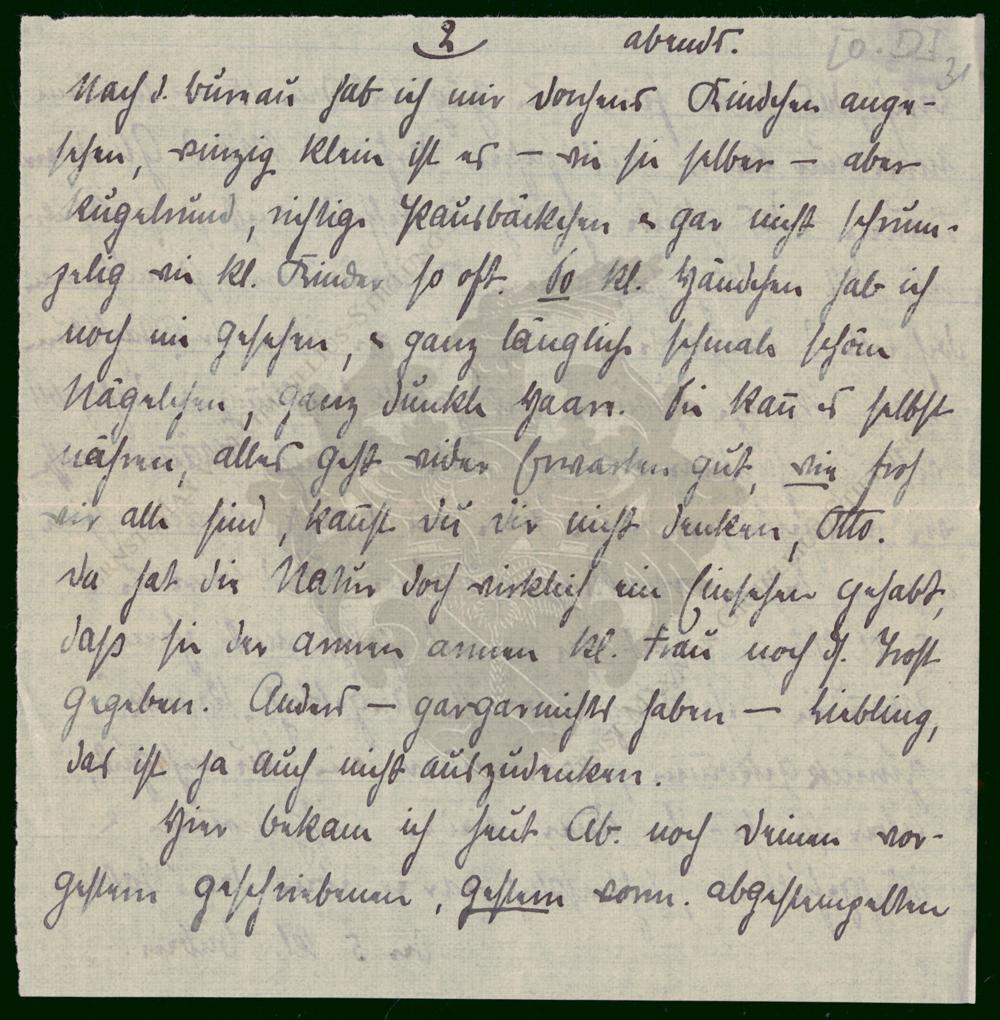 2 abends. [o. D.]
31
Nach d. bureau hab ich mir Dorchens Kindchen ange-
sehen, winzig klein ist es – wie sie selber – aber
kugelrund, richtige Pausbäckchen & gar nicht schrum-
zelig wie kl. Kinder so oft. So kl. Händchen hab ich
noch nie gesehen, & ganz längliche schmale schöne
Nägelchen, ganz dunkle Haare. Sie kañ es selbst
nähren, alles geht wider Erwarten gut, wie froh
wir alle sind, kañst du dir nicht denken, Otto.
Da hat die Natur doch wirklich ein Einsehen gehabt,
daß sie der armen armen kl. Frau noch d. Trost
gegeben. Anders – gargarnichts haben – Liebling,
das ist ja auch nicht auszudenken.
Hier bekam ich heut Ab. noch Deinen vor-
gestern geschriebenen, gestern vorm. abgestempelten